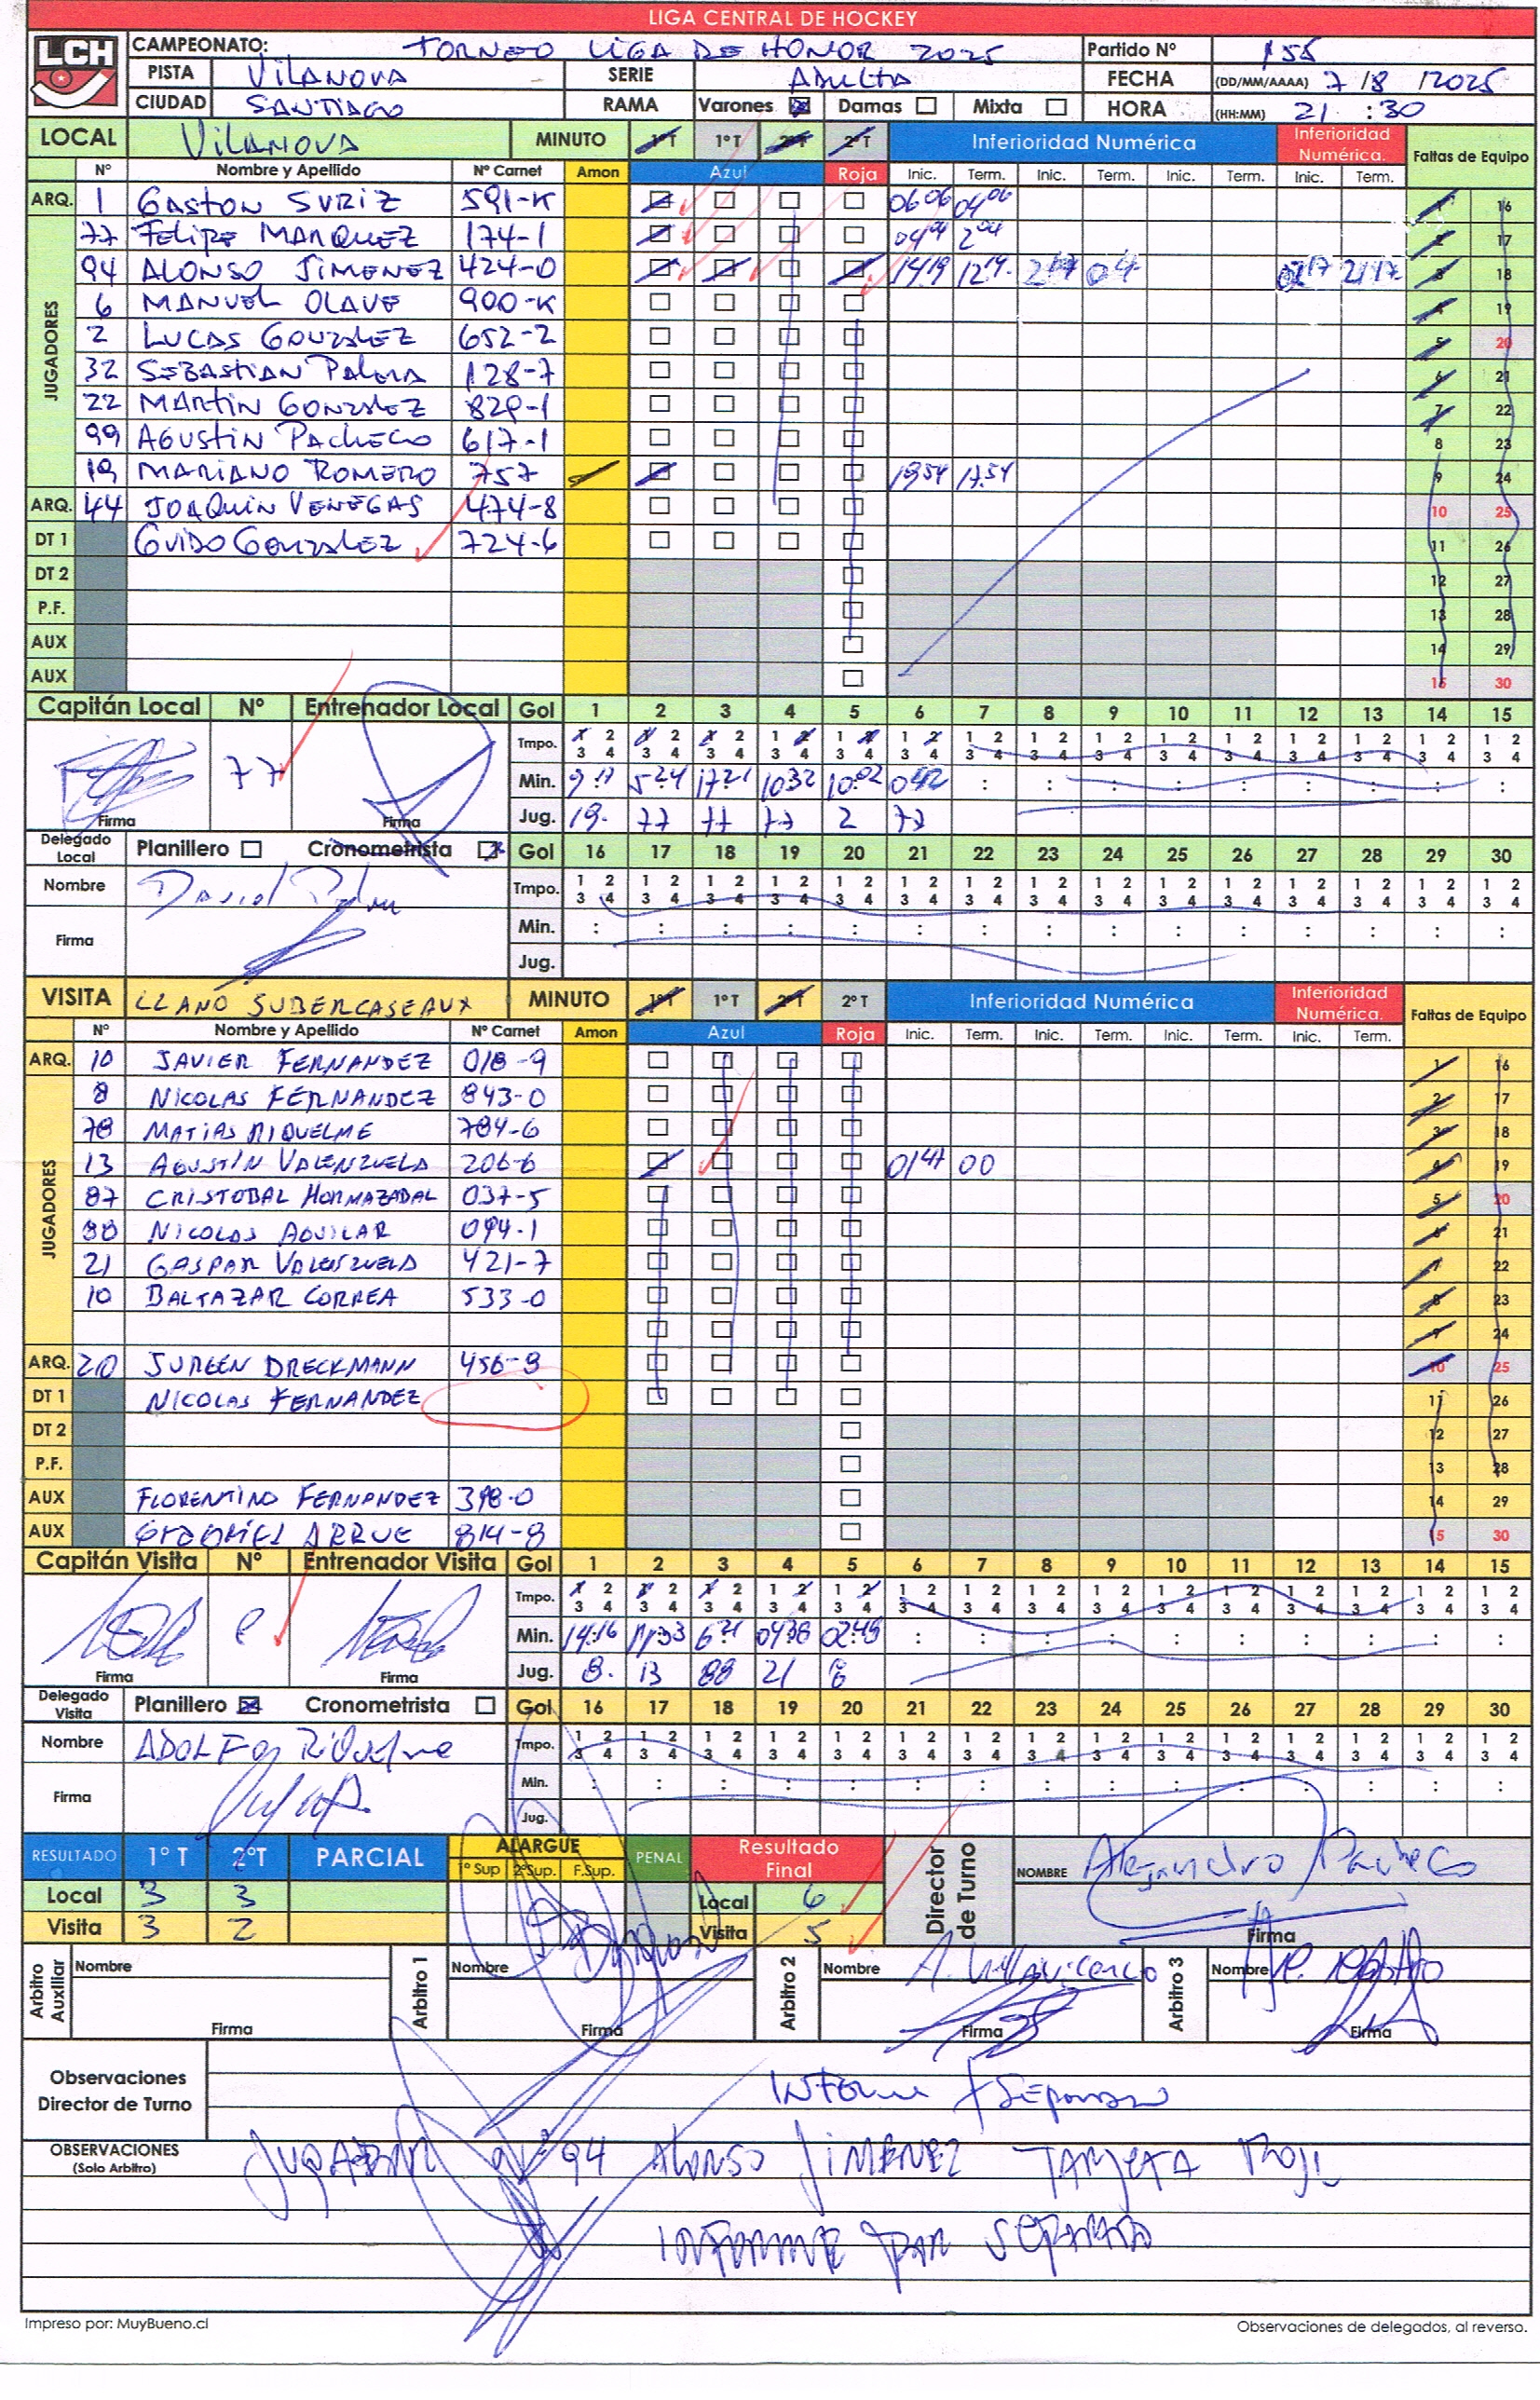 LIGA CENTRAL DE HOCKEY
LCH
CAMPEONATO: TORNEO LIGA DE HONOR 2025 Partido Nº 155
PISTA VILANOVA SERIE ADULTA FECHA (DD/MM/AAAA) 7/8/2025
CIUDAD SANTIAGO RAMA Varones Damas Mixta HORA (HH:MM) 21:30
LOCAL VILANOVA MINUTO 1ºT 1ºT 2ºT 2ºT Inferioridad Numérica Inferioridad Numérica. Faltas de Equipo
Nº Nombre y Apellido Nº Carnet Amon Azul Roja Inic. Term. Inic. Term. Inic. Term. Inic. Term.
ARQ. 1 GASTON SURIZ 591-K 0606 0406 1 16
JUGADORES
77 FELIPE MARQUEZ 174-1 0404 204 2 17
94 ALONSO JIMENEZ 424-0 1419 1219 2117 3 18
6 MANUEL OLAVE 900-K 4 19
2 LUCAS GONZALEZ 652-2 5 20
32 SEBASTIAN PALMA 128-7 6 21
22 MARTIN GONZALEZ 829-1 7 22
99 AGUSTIN PACHECO 617-1 8 23
19 MARIANO ROMERO 757 1954 1754 9 24
ARQ. 44 JOAQUIN VENEGAS 474-8 10 25
DT 1 GUIDO GONZALEZ 724-6 11 26
DT 2 12 27
P.F. 13 28
AUX 14 29
AUX 15 30
Capitán Local Nº Entrenador Local Gol 1 2 3 4 5 6 7 8 9 10 11 12 13 14 15
Tmpo. 1 2 3 4 1 2 3 4 1 2 3 4 1 2 3 4 1 2 3 4 1 2 3 4 1 2 3 4 1 2 3 4 1 2 3 4 1 2 3 4 1 2 3 4 1 2 3 4 1 2 3 4 1 2 3 4 1 2 3 4
77 Min. 9:17 5:24 17:21 10:32 10:02 0:42 : : : : : : : : :
Firma Firma Jug. 19 77 77 77 2 77
Delegado Local Planillero Cronometrista Gol 16 17 18 19 20 21 22 23 24 25 26 27 28 29 30
Nombre David Tmpo. 1 2 3 4 1 2 3 4 1 2 3 4 1 2 3 4 1 2 3 4 1 2 3 4 1 2 3 4 1 2 3 4 1 2 3 4 1 2 3 4 1 2 3 4 1 2 3 4 1 2 3 4 1 2 3 4 1 2 3 4
Firma Min. : : : : : : : : : : : : : : :
Jug.
VISITA LLANO SUBERCASEAUX MINUTO 1ºT 1ºT 2ºT 2ºT Inferioridad Numérica Inferioridad Numérica. Faltas de Equipo
Nº Nombre y Apellido Nº Carnet Amon Azul Roja Inic. Term. Inic. Term. Inic. Term. Inic. Term.
ARQ. 10 JAVIER FERNANDEZ 018-9 1 16
JUGADORES
8 NICOLAS FERNANDEZ 843-0 2 17
78 MATIAS RIQUELME 784-6 3 18
13 AGUSTIN VALENZUELA 206-6 0147 00 4 19
87 CRISTOBAL HORMAZABAL 037-5 5 20
88 NICOLAS AGUILAR 094-1 6 21
21 GASPAR VALENZUELA 421-7 7 22
10 BALTAZAR CORREA 533-0 8 23
9 24
ARQ. 20 JURGEN DRECKMANN 456-9 10 25
DT 1 NICOLAS FERNANDEZ 11 26
DT 2 12 27
P.F. 13 28
AUX FLORENTINO FERNANDEZ 398-0 14 29
AUX ARRUE 814-8 15 30
Capitán Visita Nº Entrenador Visita Gol 1 2 3 4 5 6 7 8 9 10 11 12 13 14 15
Tmpo. 1 2 3 4 1 2 3 4 1 2 3 4 1 2 3 4 1 2 3 4 1 2 3 4 1 2 3 4 1 2 3 4 1 2 3 4 1 2 3 4 1 2 3 4 1 2 3 4 1 2 3 4 1 2 3 4 1 2 3 4
Min. 14:16 11:33 6:21 04:38 02:49 : : : : : : : : : :
Firma Firma Jug. 8. 13 88 21 8
Delegado Visita Planillero Cronometrista Gol 16 17 18 19 20 21 22 23 24 25 26 27 28 29 30
Nombre ADOLFO RIQUELME Tmpo. 1 2 3 4 1 2 3 4 1 2 3 4 1 2 3 4 1 2 3 4 1 2 3 4 1 2 3 4 1 2 3 4 1 2 3 4 1 2 3 4 1 2 3 4 1 2 3 4 1 2 3 4 1 2 3 4 1 2 3 4
Firma Min. : : : : : : : : : : : : : : :
Jug.
RESULTADO 1ºT 2ºT PARCIAL ALARGUE 1ºSup 2ºSup. F.Sup. PENAL Resultado Final Director de Turno NOMBRE Alejandro Pacheco
Local 3 3 Local 6
Visita 3 2 Visita 5 Firma
Arbitro Auxiliar Nombre Arbitro 1 Nombre Arbitro 2 Nombre A. Villavicencio Arbitro 3 Nombre
Firma Firma Firma Firma
Observaciones Director de Turno Informe
OBSERVACIONES (Solo Arbitro) JUGADOR Nº 94 ALONSO JIMENEZ TARJETA ROJA
INFORME POR SEPARADO
Impreso por: MuyBueno.cl Observaciones de delegados, al reverso.